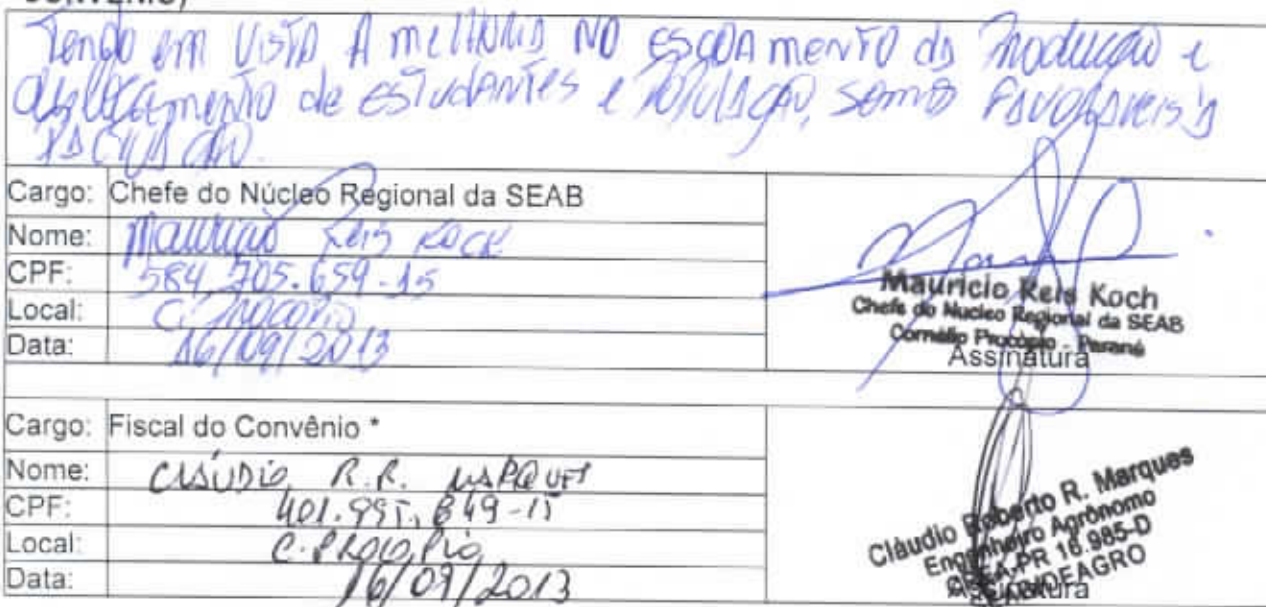 CONVÊNIO)
Tendo em vista A melhoria no escoamento da Produção e
deslocamento de estudantes e População, somos Favoráveis à
Cargo: Chefe do Núcleo Regional da SEAB
Nome: Mauricio Reis Koch
CPF: 584.705.659-15
Local: C. Procopio
Data: 16/09/2013
Mauricio Reis Koch
Chefe do Nucleo Regional da SEAB
Cornélio Procópio - Paraná
Assinatura
Cargo: Fiscal do Convênio *
Nome: CLÁUDIO R.R. MARQUES
CPF: 401.995.849-15
Local: C. PROCOPIO
Data: 16/09/2013
Cláudio Roberto R. Marques
Engenheiro Agrônomo
CREA-PR 16.985-D
Assinatura